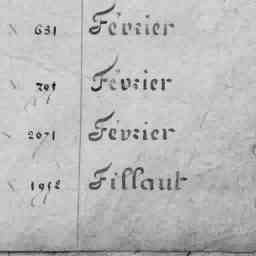 631 Février
791 Février
2071 Février
1952 Fillaut